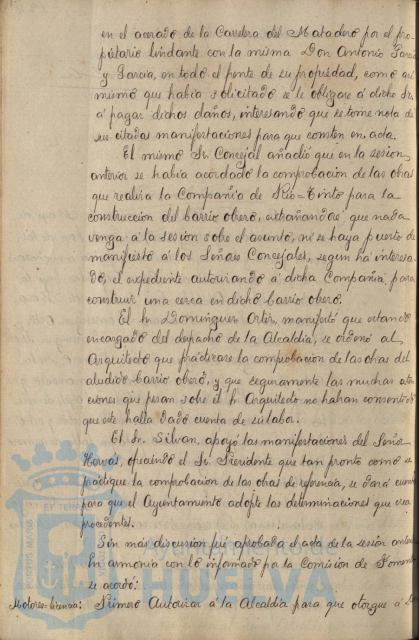 en el acerado de la Carretera del Matadero por el pro-
pietario lindante con la misma Don Antonio García
y García, en todo el frente de su propiedad, como así
mismo que había solicitado se le obligare á dicho Sr.
á pagar dichos daños, interesando que se tome nota de
sus citadas manifestaciones para que consten en acta.
El mismo Sr. Concejal añadió que en la sesion
anterior se había acordado la comprobacion de las obras
que realiza la Compañia de Rio=Tinto para la
construccion del barrio obrero, extrañandose que nada
venga á la sesion sobre el asunto, ni se haya puesto de
manifiesto á los Señores Concejales, segun ha interesa-
do, el expediente autorizando á dicha Compañia para
construir una cerca en dicho barrio obrero.
El Sr. Dominguez Ortiz, manifestó que estando
encargado del despacho de la Alcaldia, se ordenó al
Arquitecto que practicara la comprobacion de las obras del
aludido barrio obrero, y que seguramente las muchas aten-
ciones que pesan sobre el Sr. Arquitecto no habran consentido
que este halla dado cuenta de su labor.
El Sr. Silvan, apoyó las manifestaciones del Señor
Hervás, ofreciendo el Sr. Presidente que tan pronto como se
practique la comprobacion de las obras de referencia, se dará cuenta
para que el Ayuntamiento adopte las determinaciones que crea
procedentes.
Sin más discusion fué aprobada el acta de la sesion anterior
En armonia con lo informado por la Comision de Fomento
se acordó:
Motores=licencia: Primero Autorizar á la Alcaldia para que otorgue á
PORTUS MARIS
ET TERRAE
Ayuntamiento de
HUELVA